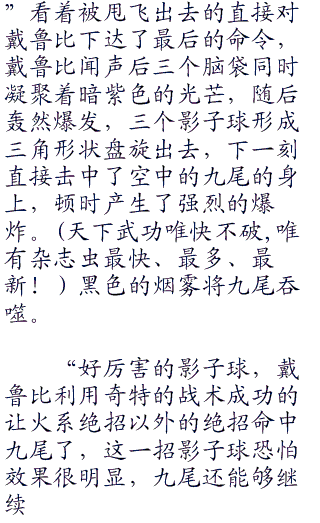 ”看着被甩飞出去的直接对
戴鲁比下达了最后的命令，
戴鲁比闻声后三个脑袋同时
凝聚着暗紫色的光芒，随后
轰然爆发，三个影子球形成
三角形状盘旋出去，下一刻
直接击中了空中的九尾的身
上，顿时产生了强烈的爆
炸。(天下武功唯快不破,唯
有杂志虫最快、最多、最
新！）黑色的烟雾将九尾吞
噬。
“好厉害的影子球，戴
鲁比利用奇特的战术成功的
让火系绝招以外的绝招命中
九尾了，这一招影子球恐怕
效果很明显，九尾还能够继
续